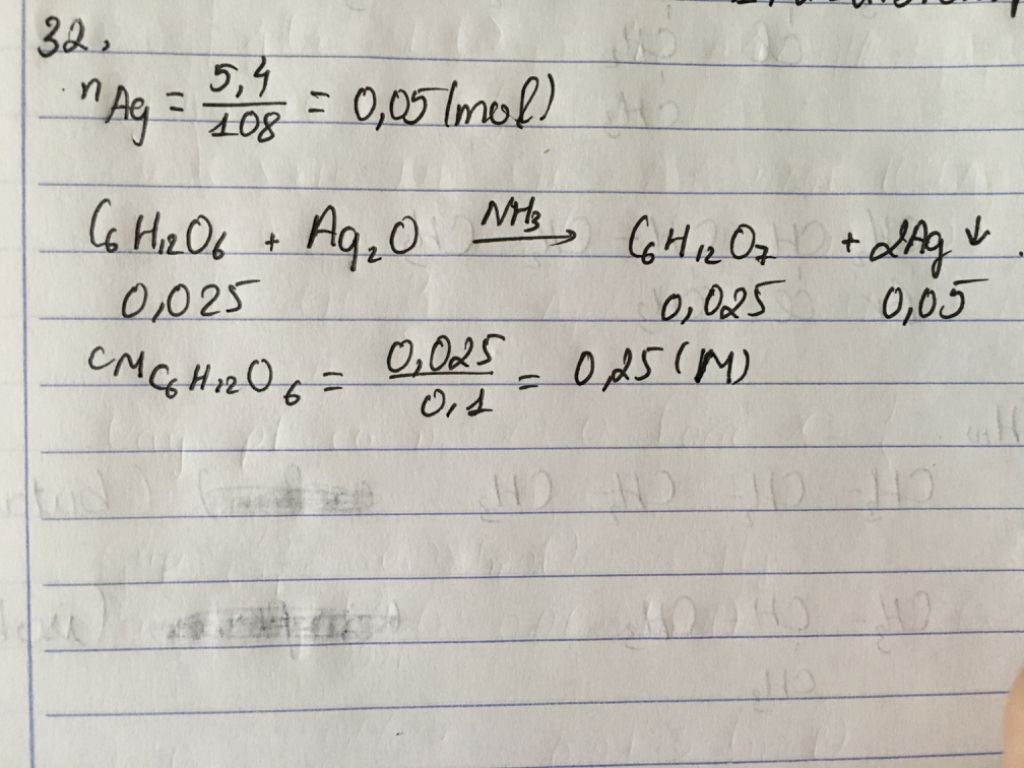 32,
nAg = 5,4/108 = 0,05 (mol)
C6H12O6 + Ag2O NH3→ C6H12O7 + 2Ag ↓
0,025 0,025 0,05
CM C6H12O6 = 0,025/0,1 = 0,25 (M)